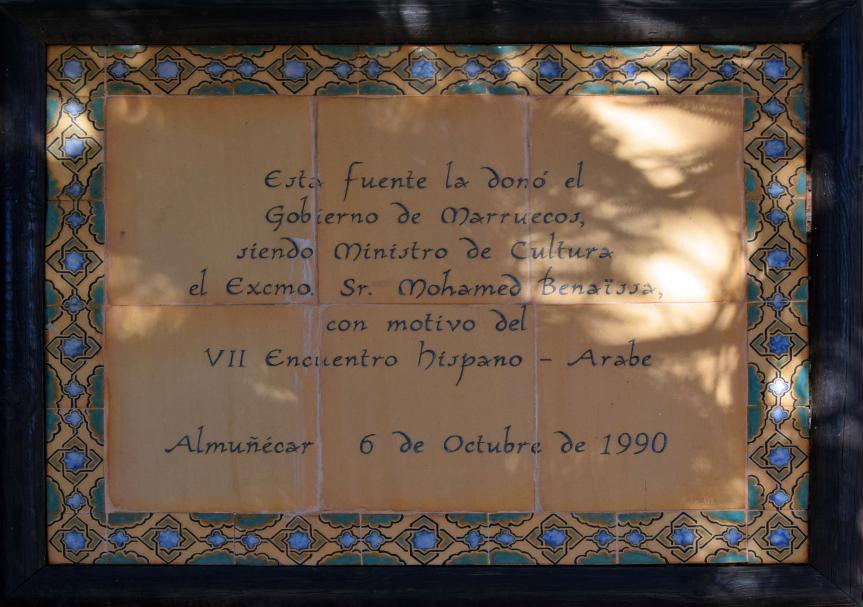 Esta fuente la donó el
Gobierno de Marruecos,
siendo Ministro de Cultura
el Excmo. Sr. Mohamed Benaïssa,
con motivo del
VII Encuentro hispano - Arabe
Almuñécar 6 de Octubre de 1990